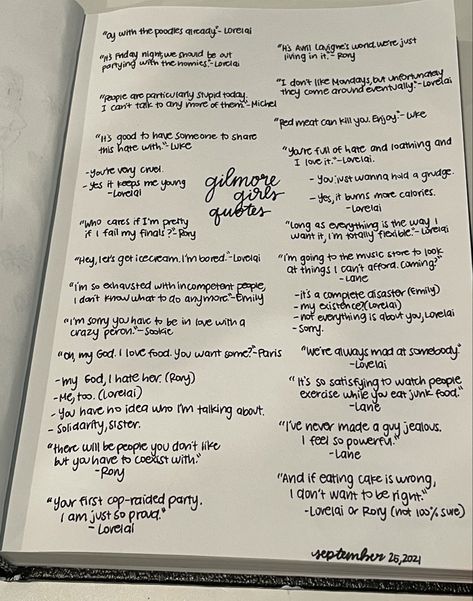 "oy with the poodles already"- Lorelai
"it's Friday night, we should be out
partying with the homies."- Lorelai
"People are particularly stupid today.
I can't talk to any more of them."- Michel
"It's good to have someone to share
this hate with."- Luke
- You're very cruel.
- Yes it keeps me young
- Lorelai
"Who cares if I'm pretty
if I fail my finals?"- Rory
"Hey, let's get icecream. I'm bored."- Lorelai
"I'm so exhausted with incompetent people,
I don't know what to do anymore."- Emily
"I'm sorry you have to be in love with a
crazy peron."- Sookie
"Oh, my God. I love food. You want some?"- Paris
- my God, I hate her. (Rory)
- Me, too. (Lorelai)
- You have no idea who I'm talking about.
- Solidarity, sister.
"there will be people you don't like
but you have to coexist with."
- Rory
"Your first cop-raided party.
I am just so proud."
- Lorelai
gilmore
girls
quotes
"It's Avril Lavigne's world, we're just
living in it."- Rory
"I don't like Mondays, but unfortunately
they come around eventually."- Lorelai
"Red meat can kill you. Enjoy."- Luke
"You're full of hate and loathing and
I love it."- Lorelai.
- You just wanna hold a grudge.
- Yes, it burns more calories.
- Lorelai
"Long as everything is the way I
want it, I'm totally flexible."- Lorelai
"I'm going to the music store to look
at things I can't afford. Coming?"
- Lane
- it's a complete disaster (Emily)
- my existence? (Lorelai)
- not everything is about you, Lorelai
- Sorry.
"We're always mad at somebody."
- Lorelai
"It's so satisfying to watch people
exercise while you eat junk food."
- Lane
"I've never made a guy jealous.
I feel so powerful."
- Lane
"And if eating cake is wrong,
I don't want to be right."
- Lorelai or Rory (not 100% sure)
september 25, 2021